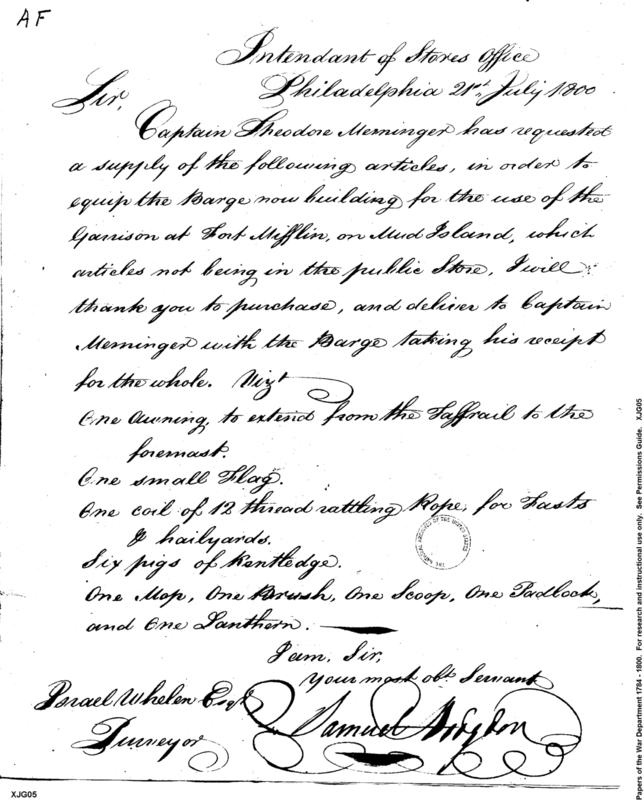 AF
Intendant of Stores Office
Philadelphia 21st July 1800
Sir,
Captain Theodore Memminger has requested
a supply of the following articles, in order to
equip the Barge now building for the use of the
Garrison at Fort Mifflin, on Mud Island, which
articles not being in the public Store, I will
thank you to purchase, and deliver to Captain
Memminger with the Barge taking his receipt
for the whole. Vizt
One Awning, to extend from the Taffrail to the
foremast.
One small Flag.
One coil of 12 thread rattling Rope, for Fasts
& hailyards.
Six pigs of Kentledge.
One Mop, One Brush, One Scoop, One Padlock,
and One Lanthern.
I am, Sir,
Your most obt. Servant
Samuel Hodgdon
Israel Whelen Esqr
Purveyor
THE NATIONAL ARCHIVES OF THE UNITED STATES
XJG05
Papers of the War Department 1784 - 1800. For research and instructional use only. See Permissions Guide. XJG05